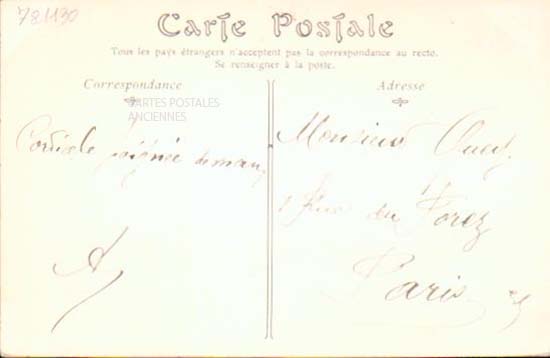 781130
Carte Postale
Tous les pays étrangers n'acceptent pas la correspondance au recto.
Se renseigner à la poste.
Correspondance
CARTES POSTALES
ANCIENNES
Cordiale poignée de main
A
Adresse
Monsieur
1 Rue du Forez
Paris